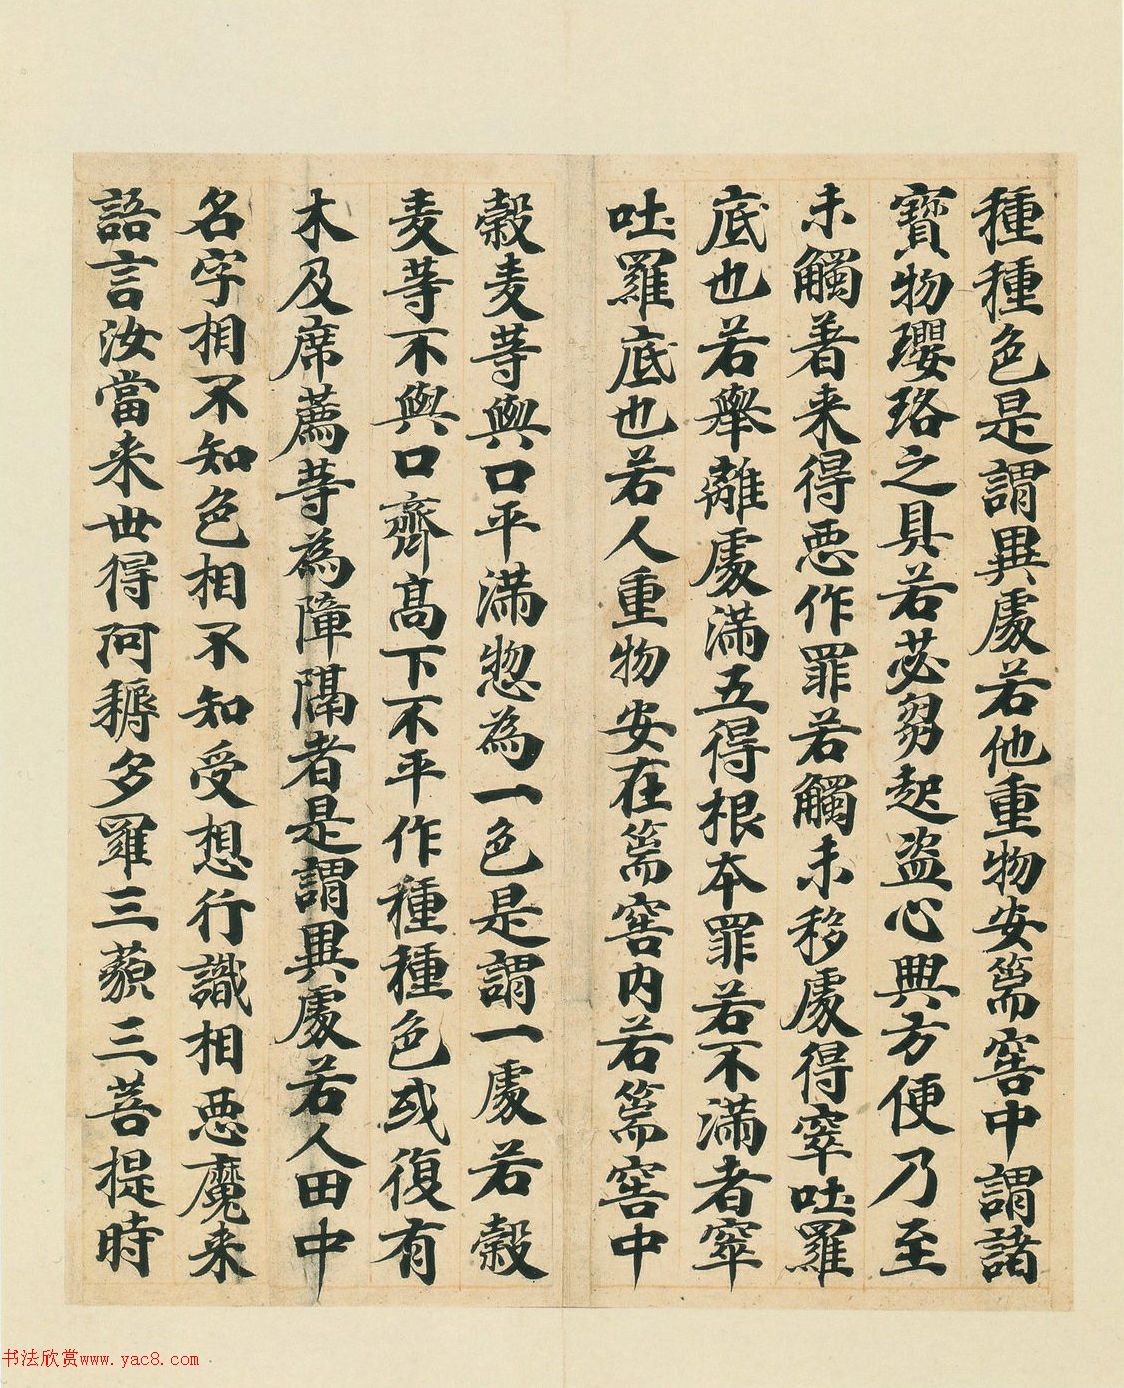 種種色是謂異處若他重物安篅窖中謂諸
寶物瓔珞之具若苾芻起盜心興方便乃至
未觸著来得惡作罪若觸未移處得窣吐羅
底也若舉離處滿五得根本罪若不滿者窣
吐羅底也若人重物安在篅窖内若篅窖中
穀麦等與口平滿惣為一色是謂一處若穀
麦等不與口齊高下不平作種種色或復有
木及席薦等為障隔者是謂異處若人田中
名字相不知色相不知受想行識相惡魔来
語言汝當来世得阿耨多羅三藐三菩提時
书法欣赏www.yac8.com